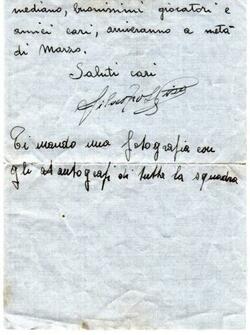 mediano, buonissimi giocatori e
amici cari, arriveranno a metà
di Marzo.
Saluti cari
Ti mando una fotografia con
gli autografi di tutta la squadra